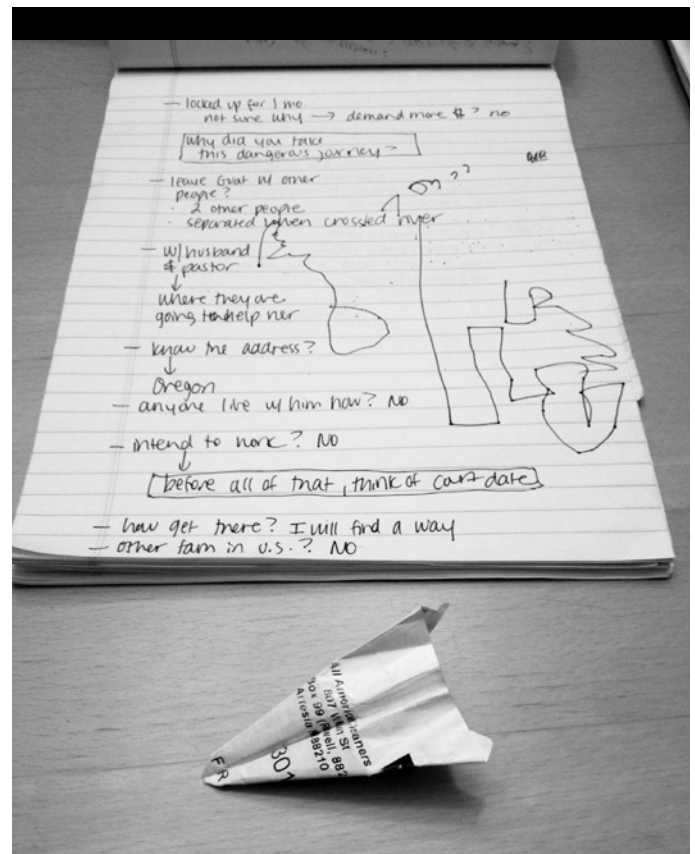 — locked up for 1 mo.
not sure why → demand more $ ? no
why did you take
this dangerous journey?
— leave Guat w/ other
people?
· 2 other people
· separated when crossed river
— w/ husband
& pastor
↓
where they are
going to help her
— know the address?
↓
Oregon
— anyone live w/ him now? NO
— intend to work? NO
↓
before all of that, think of court date
— how get there? I will find a way
— other fam in U.S.? NO
All Americ eaners
807 W in St
Box 99 (R well, 882
Artesia 88210
301
FR